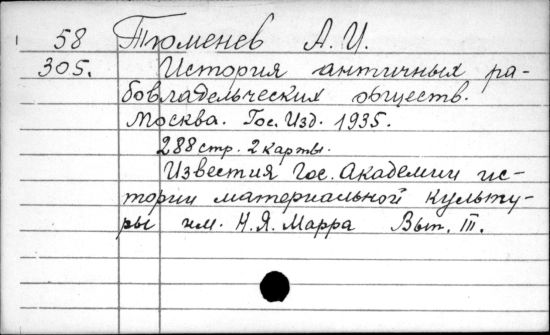 58 Тюменев А. И.
305. История античных ра-
бовладельческих обществ.
Москва. Гос. Изд. 1935.
288 стр. 2 карты.
Известия Гос. Академии ис-
тории материальной культу-
ры им. Н. Я. Марра Вып. III.